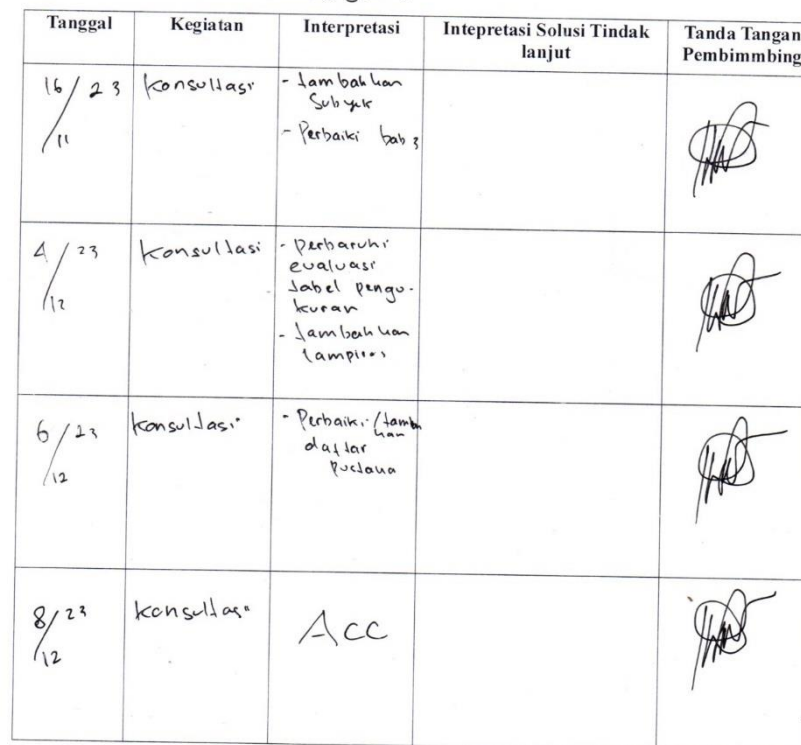 Tanggal Kegiatan Interpretasi Intepretasi Solusi Tindak lanjut Tanda Tangan Pembimmbing
16/11 23 Konsultasi - Tambahkan
Subyek
- Perbaiki bab 3
4/12 23 Konsultasi - Perbaruhi
evaluasi
tabel pengu-
kuran
- Tambahkan
lampiran
6/12 23 Konsultasi - Perbaiki/tambahkan
daftar
pustaka
8/12 23 Konsultasi ACC